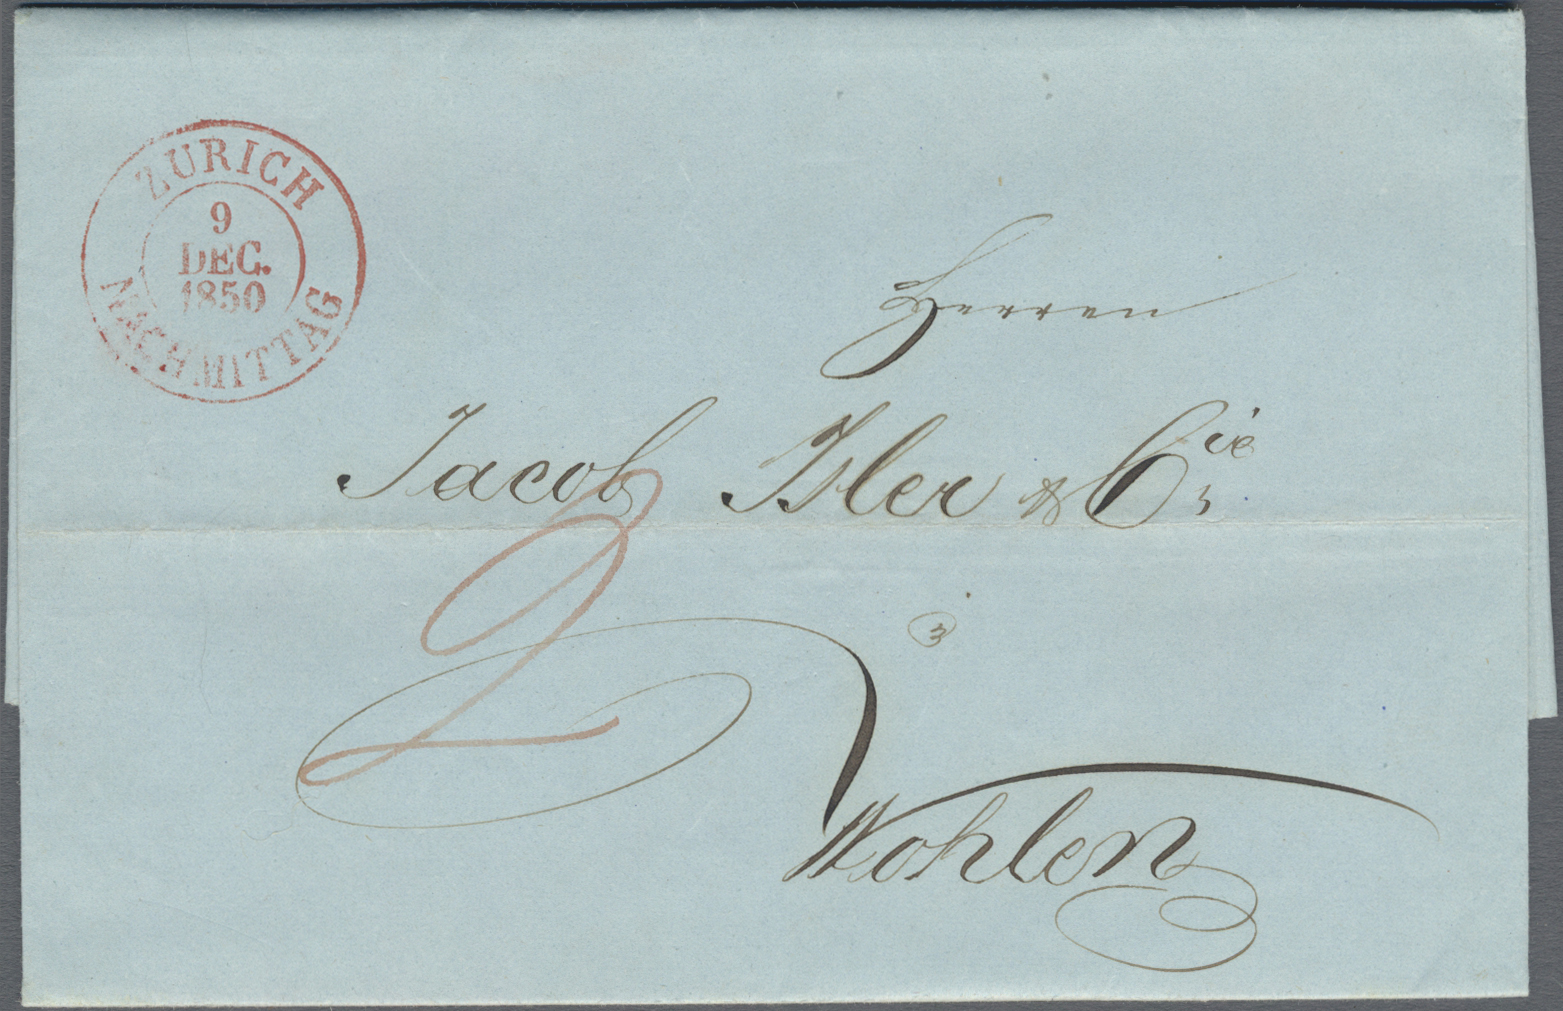 ZURICH
9
DEC.
1850
NACHMITTAG
Herren
Jacob Isler & Cie
2
Wohlen